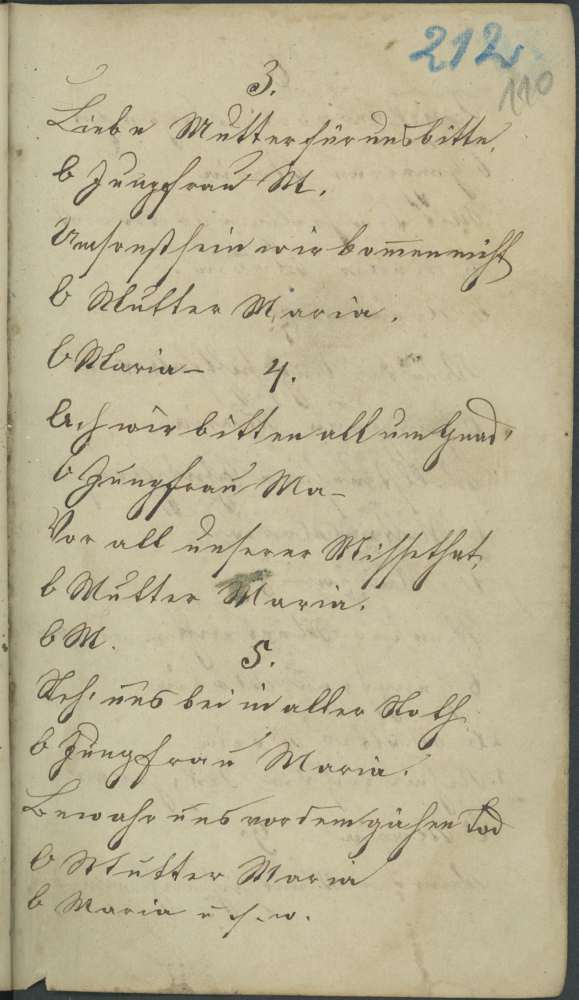 212
110
3.
Liebe Mutter für uns bitte,
O Jungfrau M.
Umsonst sein wir kommen nicht
O Mutter Maria.
O Maria –
4.
Ach wir bitten all um Gnad,
O Jungfrau Ma–
Vor all unserer Missethat,
O Mutter Maria.
O M.
5.
Steh, uns bei in aller Noth
O Jungfrau Maria.
Bewahr uns vor dem gähen Tod
O Mutter Maria
O Maria u.s.w.